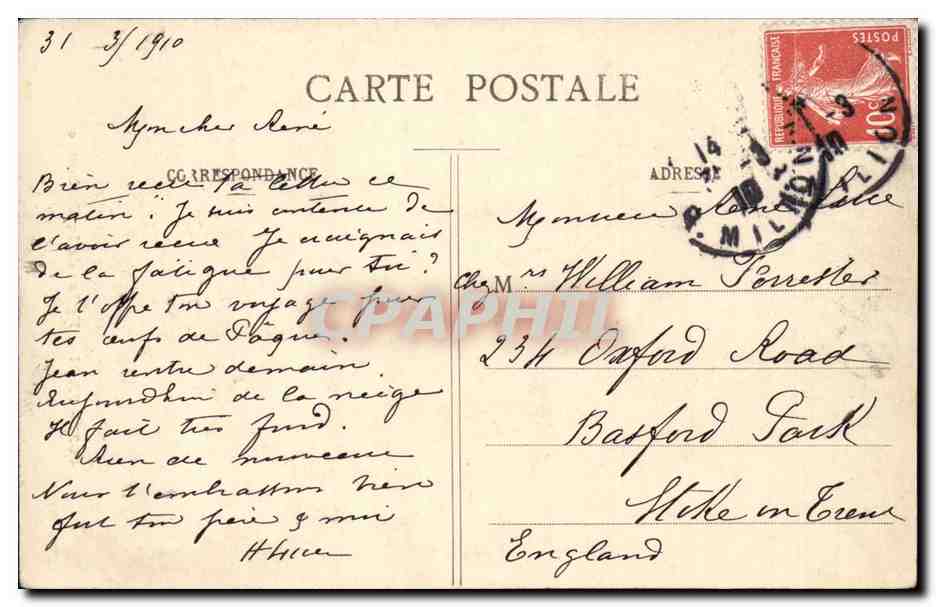 31 3/1910
CARTE POSTALE
Mon cher René
CORRESPONDANCE
Bien reçu ta lettre ce
matin. Je suis contente de
l'avoir reçue Je craignais
de la fatigue pour toi?
Je t'offre ton voyage pour
tes œufs de Pâques.
Jean rentre demain
Aujourd'hui de la neige
Il fait très froid.
Rien de nouveau
Nous t'embrassons bien
fort ton père & moi
ADRESSE
Monsieur René
chez Mrs William Forrester
234 Oxford Road
Basford Park
Stoke on Trent
England
REPUBLIQUE FRANÇAISE
POSTES
10c
CPAPHIL